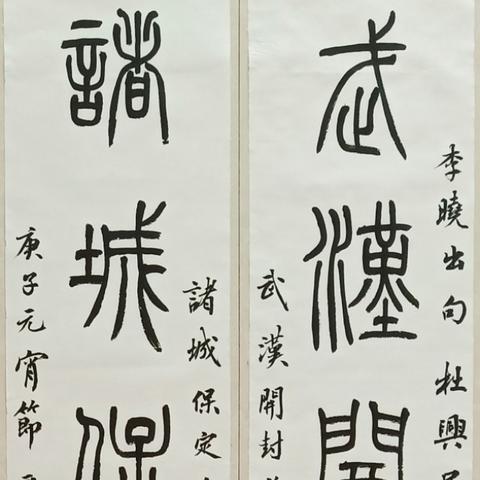 李曉出句 杜興
武漢開
武漢開封
諸城保定
諸城保
庚子元宵節